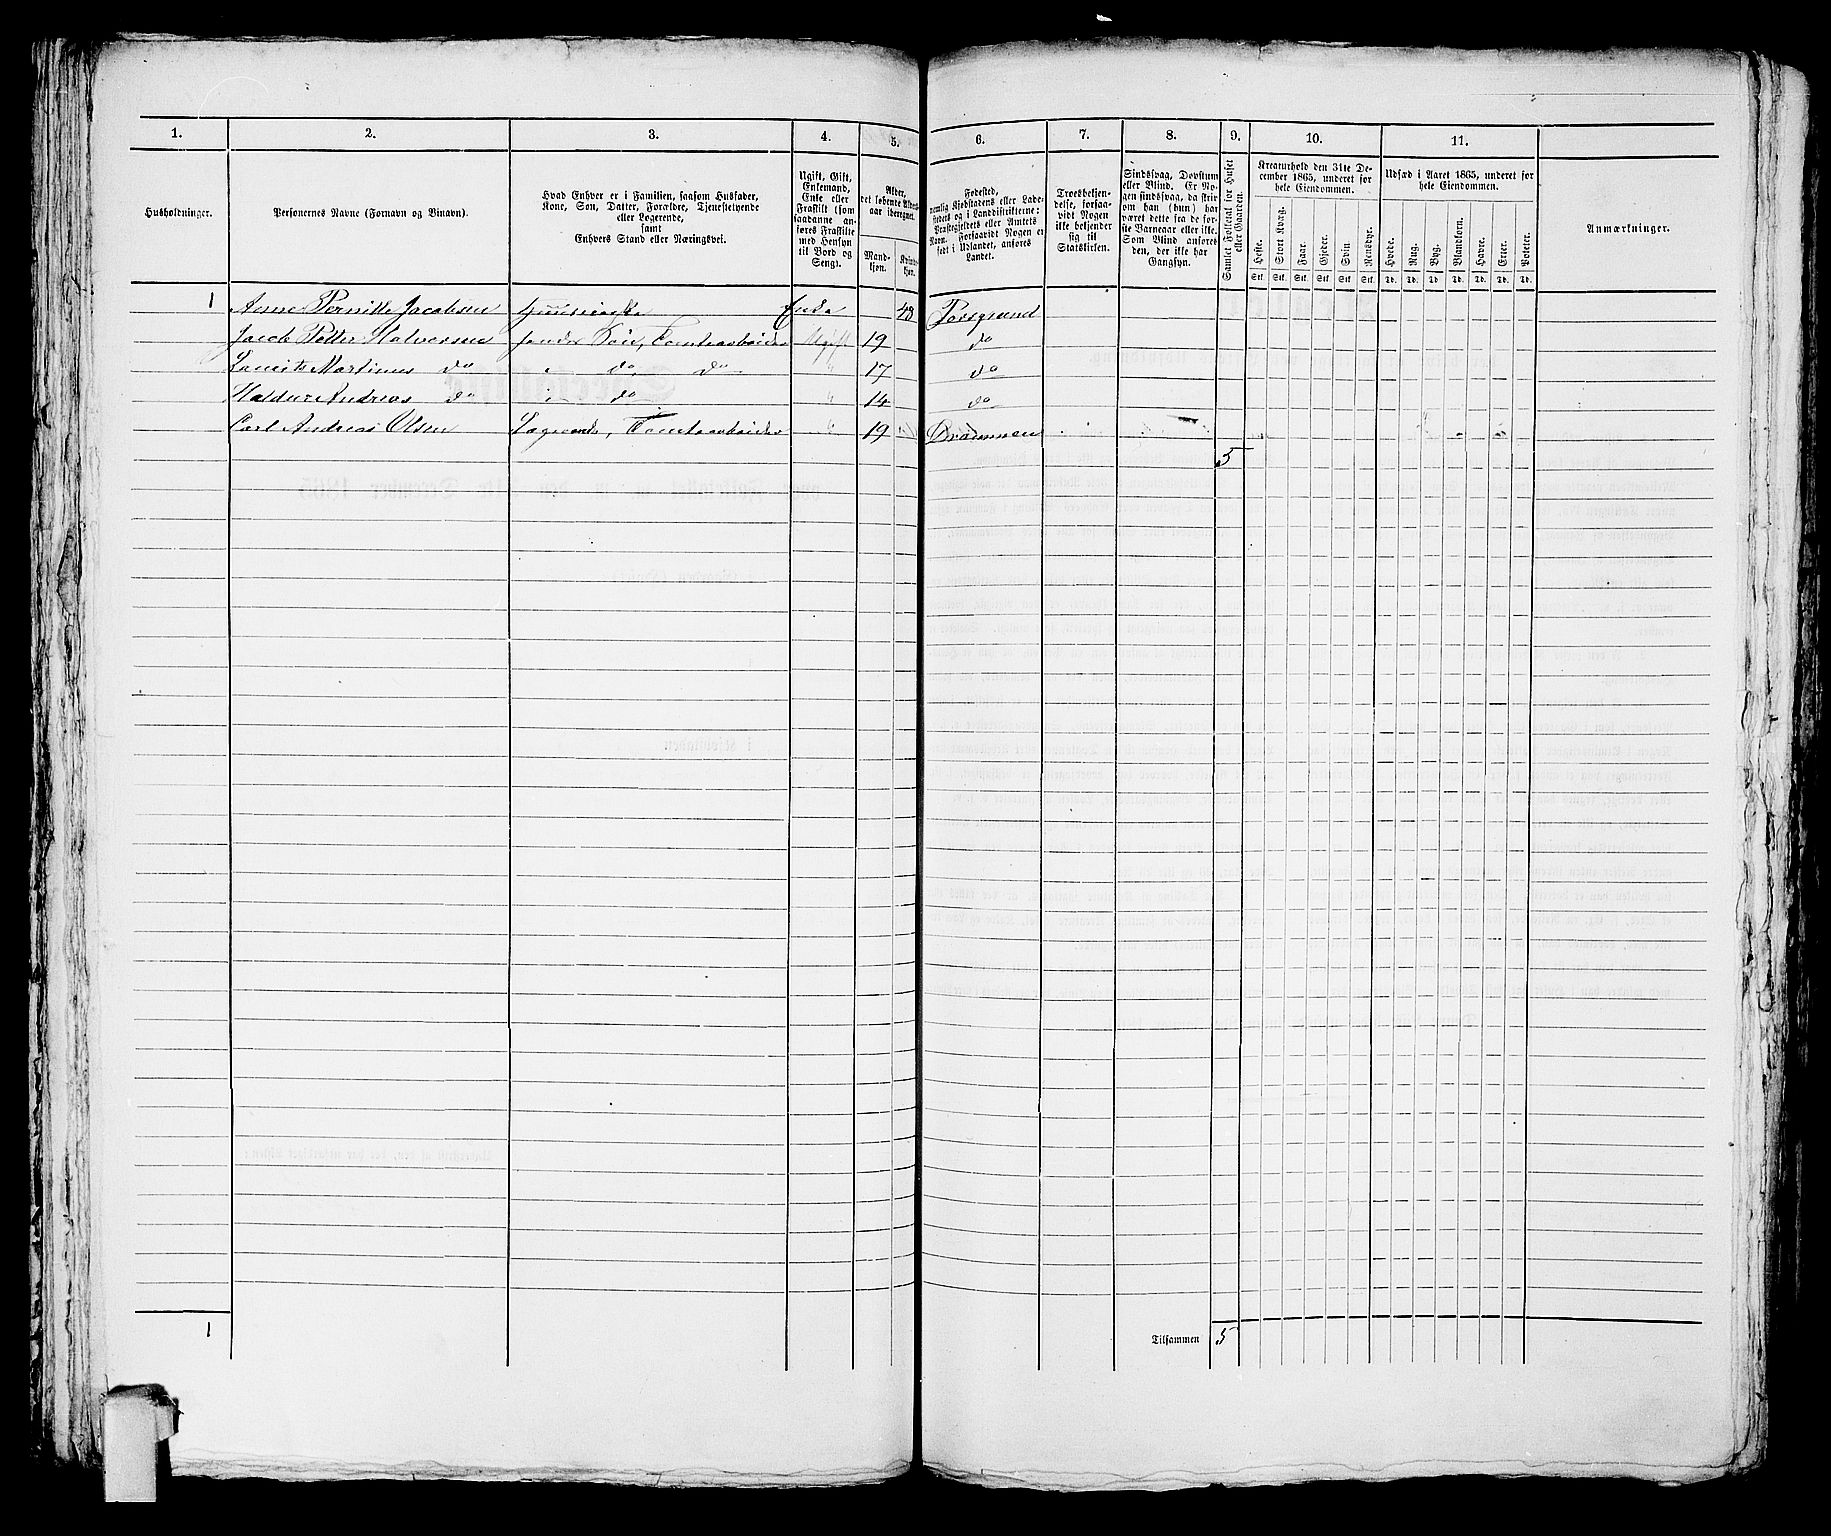 1. 2. 3. 4. 5. 6. 7. 8. 9. 10. 11.
Husholdninger.
Personernes Navne (Fornavn og Binavn).
Hvad Enhver er i Familien, saasom Husfader,
Kone, Søn, Datter, Forældre, Tjenestetyende
eller Logerende,
samt
Enhvers Stand eller Næringsvei.
Ugift, Gift,
Enkemand,
Enke eller
Fraskilt (som
saadanne anføres Fraskilte
med Hensyn
til Bord og
Seng).
Alder,
det løbende Aldersaar iberegnet.
Mandkjøn. Kvindekjøn.
Fødested,
nemlig Kjøbstadens eller Ladestedets og i Landdistrikterne:
Præstegjeldets eller Amtets
Navn. Forsaavidt Nogen er
født i Udlandet, anføres
Landet.
Troesbekjendelse, forsaavidt Nogen
ikke bekjender
sig til
Statskirken.
Sindssvag, Døvstum
eller Blind. Er Nogen sindssvag, da skrives om han (hun) har
været dette fra de første Barneaar eller ikke.
Som Blind anføres
den, der ikke har
Gangsyn.
Samlet Folketal for Huset
eller Gaarden.
Kreaturhold den 31te December 1865, underet for
hele Eiendommen.
Heste. Stort Kvæg. Faar. Gjeder. Svin Rensdyr.
Stk. Stk. Stk. Stk. Stk. Stk.
Udsæd i Aaret 1865, underet for
hele Eiendommen.
Hvede. Rug. Byg. Blandkorn. Havre. Erter. Poteter.
Td. Td. Td Td. Td. Td. Td.
Anmærkninger.
1 Anne Pernille Jacobsen Enke 48 Porsgrund
Jacob Petter Halvorsen Søn, Tomtearbeider Ugift 19 do
Laurits Martinus do " do do " 17 do
Haldur Andreas do " do " 14 do
Carl Andreas Olsen Logerende, Tomtearbeider " 19 Drammen
5
1 Tilsammen 5